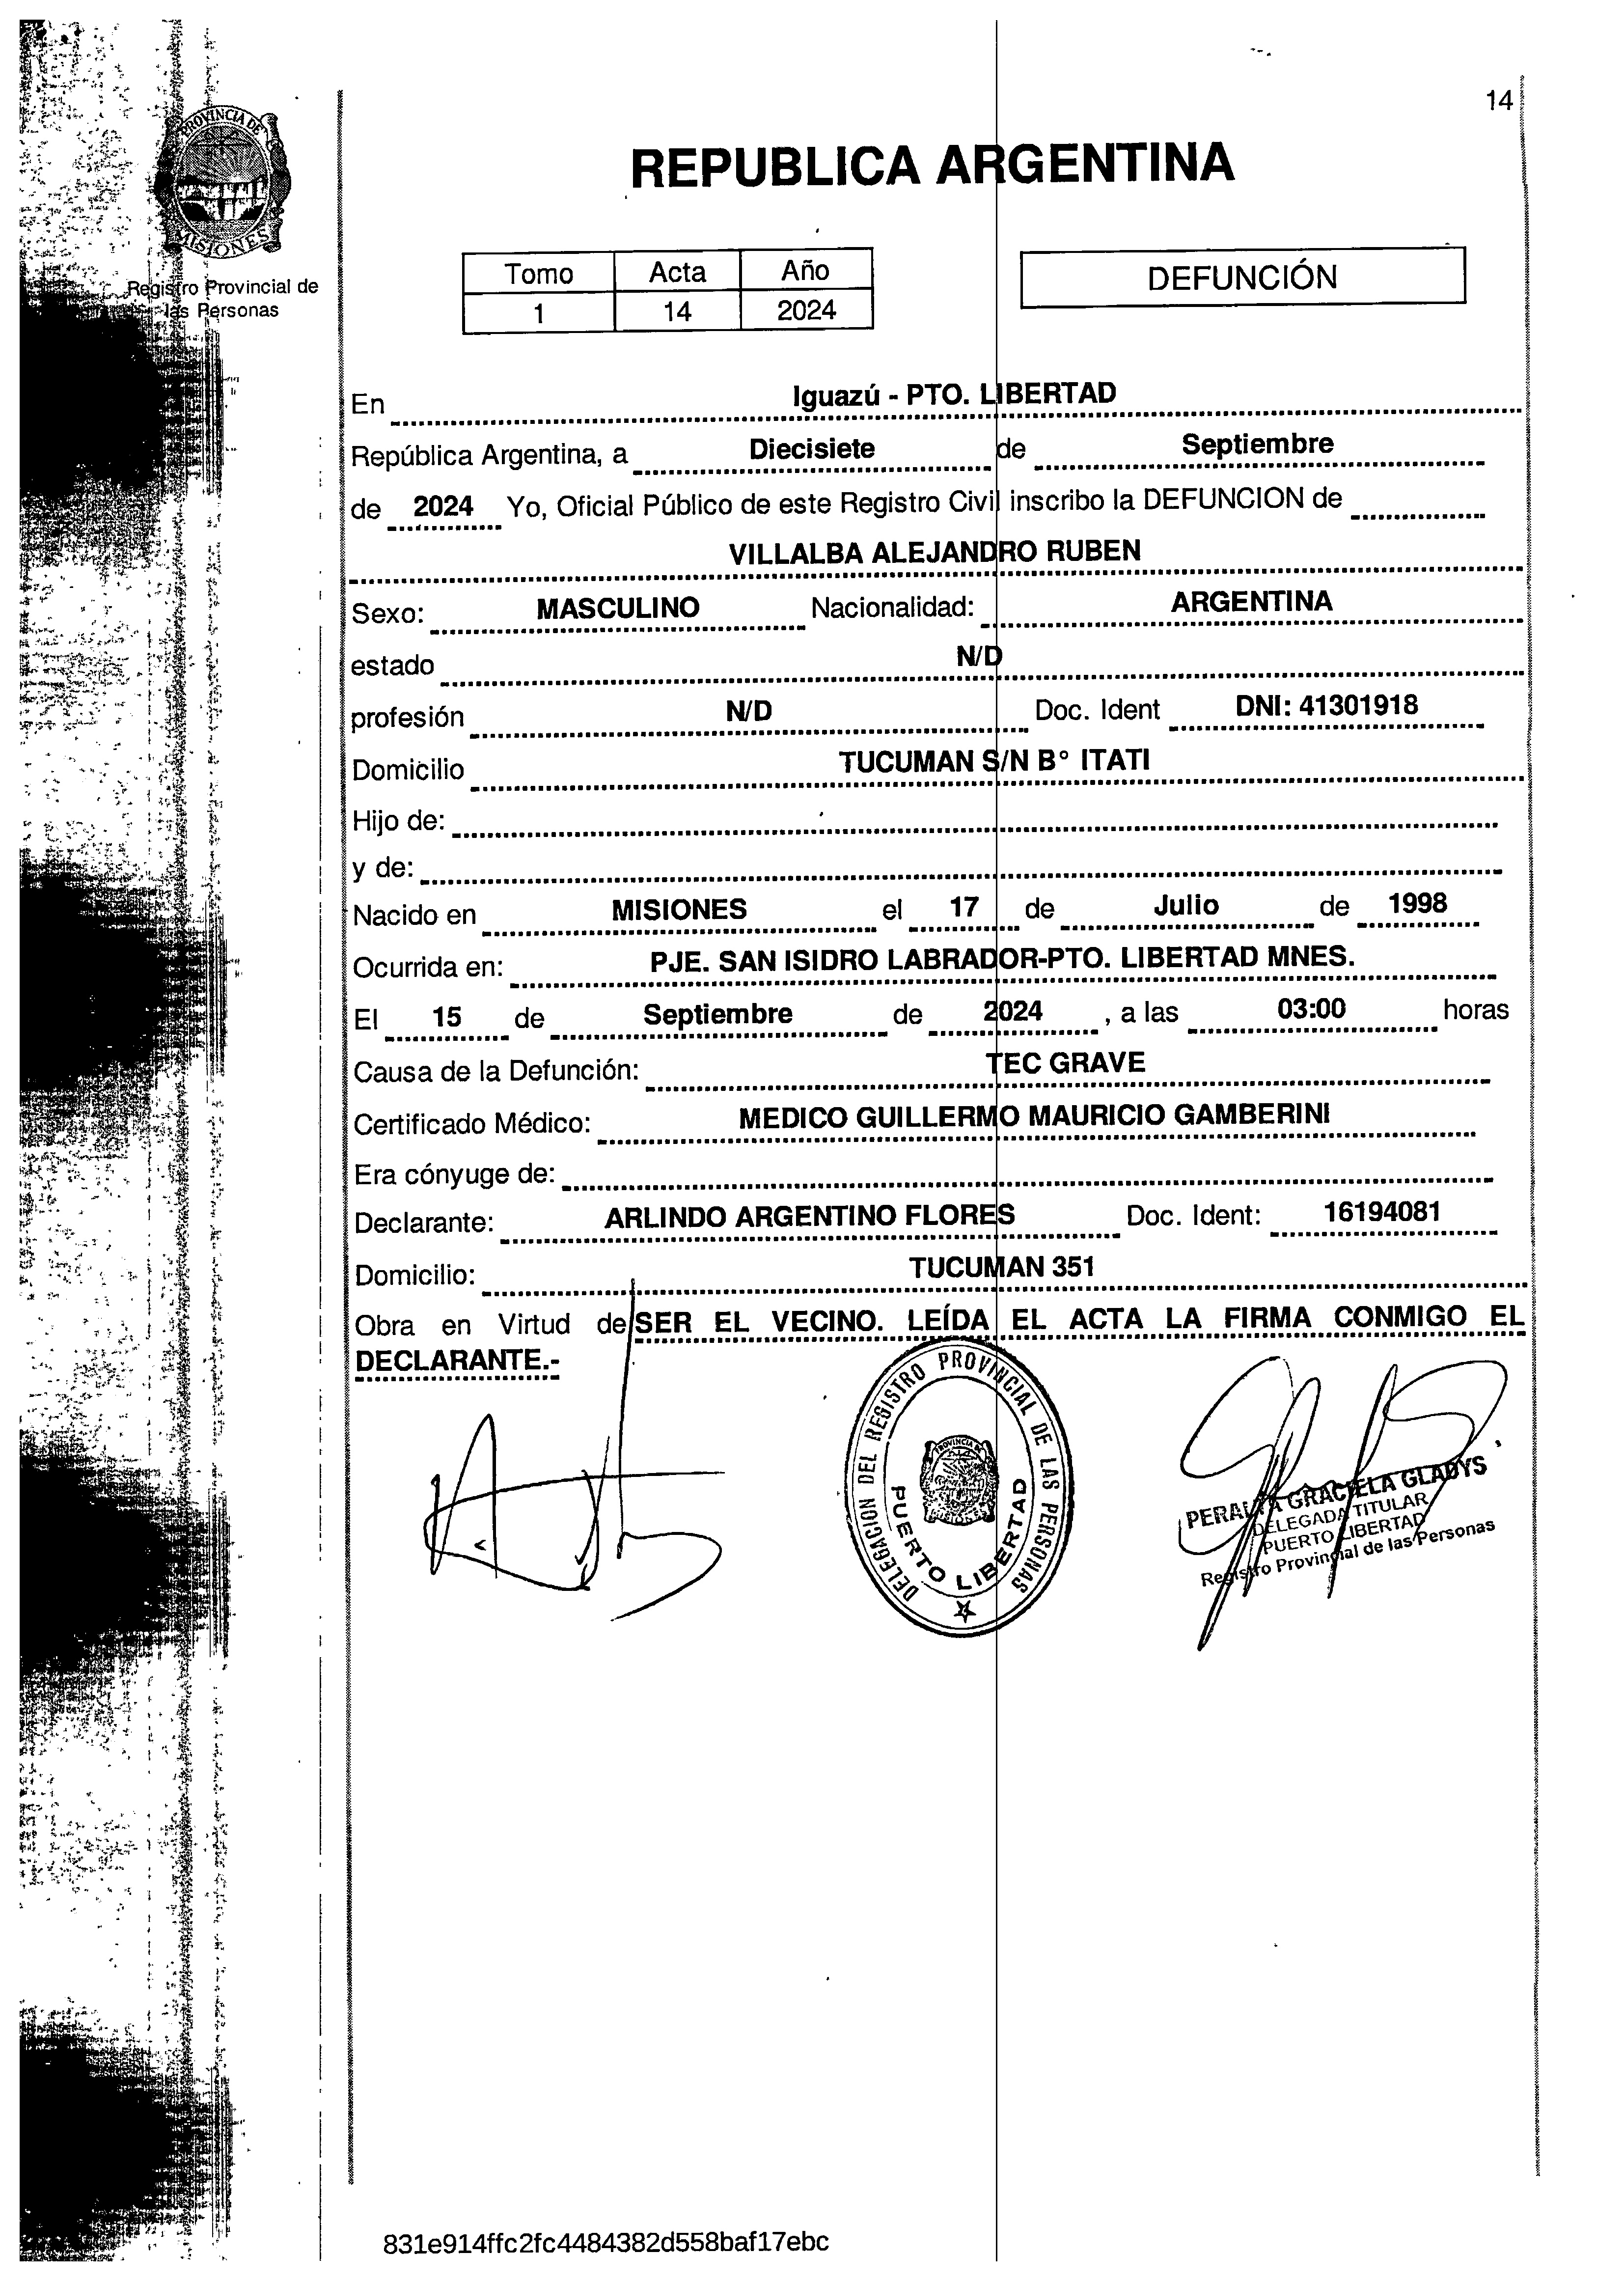 14
PROVINCIA DE
MISIONES
Registro Provincial de
las Personas
REPUBLICA ARGENTINA
Tomo Acta Año
1 14 2024
DEFUNCIÓN
En Iguazú - PTO. LIBERTAD
República Argentina, a Diecisiete de Septiembre
de 2024 Yo, Oficial Público de este Registro Civil inscribo la DEFUNCION de
VILLALBA ALEJANDRO RUBEN
Sexo: MASCULINO Nacionalidad: ARGENTINA
estado N/D
profesión N/D Doc. Ident DNI: 41301918
Domicilio TUCUMAN S/N B° ITATI
Hijo de:
y de:
Nacido en MISIONES el 17 de Julio de 1998
Ocurrida en: PJE. SAN ISIDRO LABRADOR-PTO. LIBERTAD MNES.
El 15 de Septiembre de 2024 , a las 03:00 horas
Causa de la Defunción: TEC GRAVE
Certificado Médico: MEDICO GUILLERMO MAURICIO GAMBERINI
Era cónyuge de:
Declarante: ARLINDO ARGENTINO FLORES Doc. Ident: 16194081
Domicilio: TUCUMAN 351
Obra en Virtud de SER EL VECINO. LEÍDA EL ACTA LA FIRMA CONMIGO EL
DECLARANTE.-
DELEGACION DEL REGISTRO PROVINCIAL DE LAS PERSONAS
PROVINCIA DE
MISIONES
PUERTO LIBERTAD
PERALTA GRACIELA GLADYS
DELEGADA TITULAR
PUERTO LIBERTAD
Registro Provincial de las Personas
831e914ffc2fc4484382d558baf17ebc